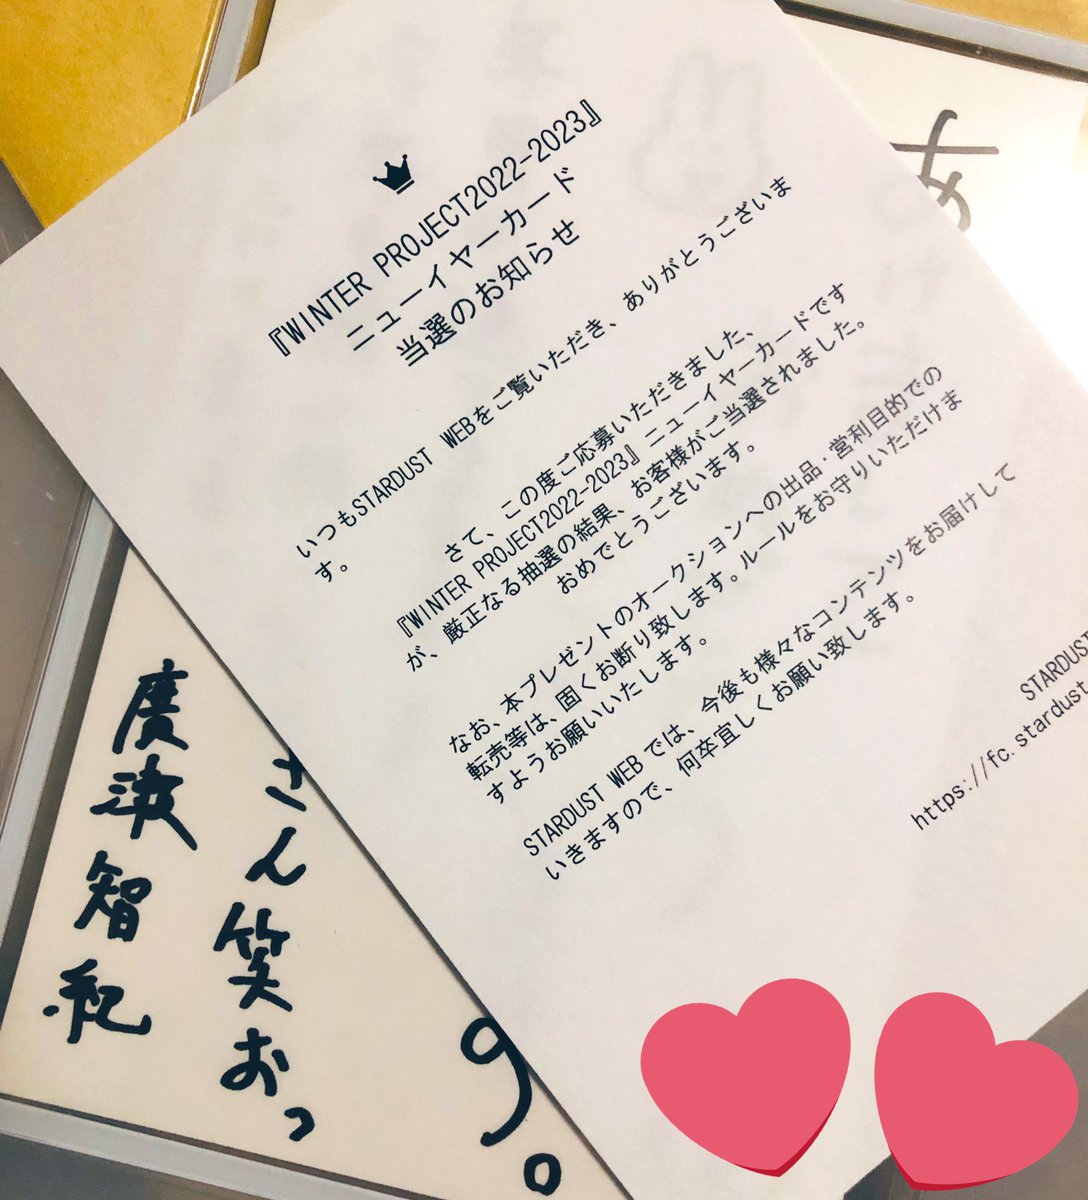 『WINTER PROJECT2022-2023』
ニューイヤーカード
当選のお知らせ
いつもSTARDUST WEBをご覧いただき、ありがとうございま
す。
さて、この度ご応募いただきました、
『WINTER PROJECT2022-2023』ニューイヤーカードです
が、厳正なる抽選の結果、お客様がご当選されました。
おめでとうございます。
なお、本プレゼントのオークションへの出品・営利目的での
転売等は、固くお断り致します。ルールをお守りいただけま
すようお願いいたします。
STARDUST WEBでは、今後も様々なコンテンツをお届けして
いきますので、何卒宜しくお願い致します。
STARDUST
https://fc.stardust
さん笑おっ
廣瀬智紀